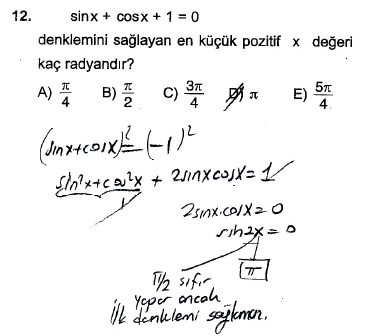 12. sinx + cosx + 1 = 0
denklemini sağlayan en küçük pozitif x değeri
kaç radyandır?
A) π/4 B) π/2 C) 3π/4 D) π E) 5π/4
(sinx+cosx)² = (-1)²
sin²x+cos²x + 2sinxcosx = 1
1
2sinx.cosx = 0
sin2x = 0
π
π/2 sıfır
yapar ancak
ilk denklemi sağlamaz.